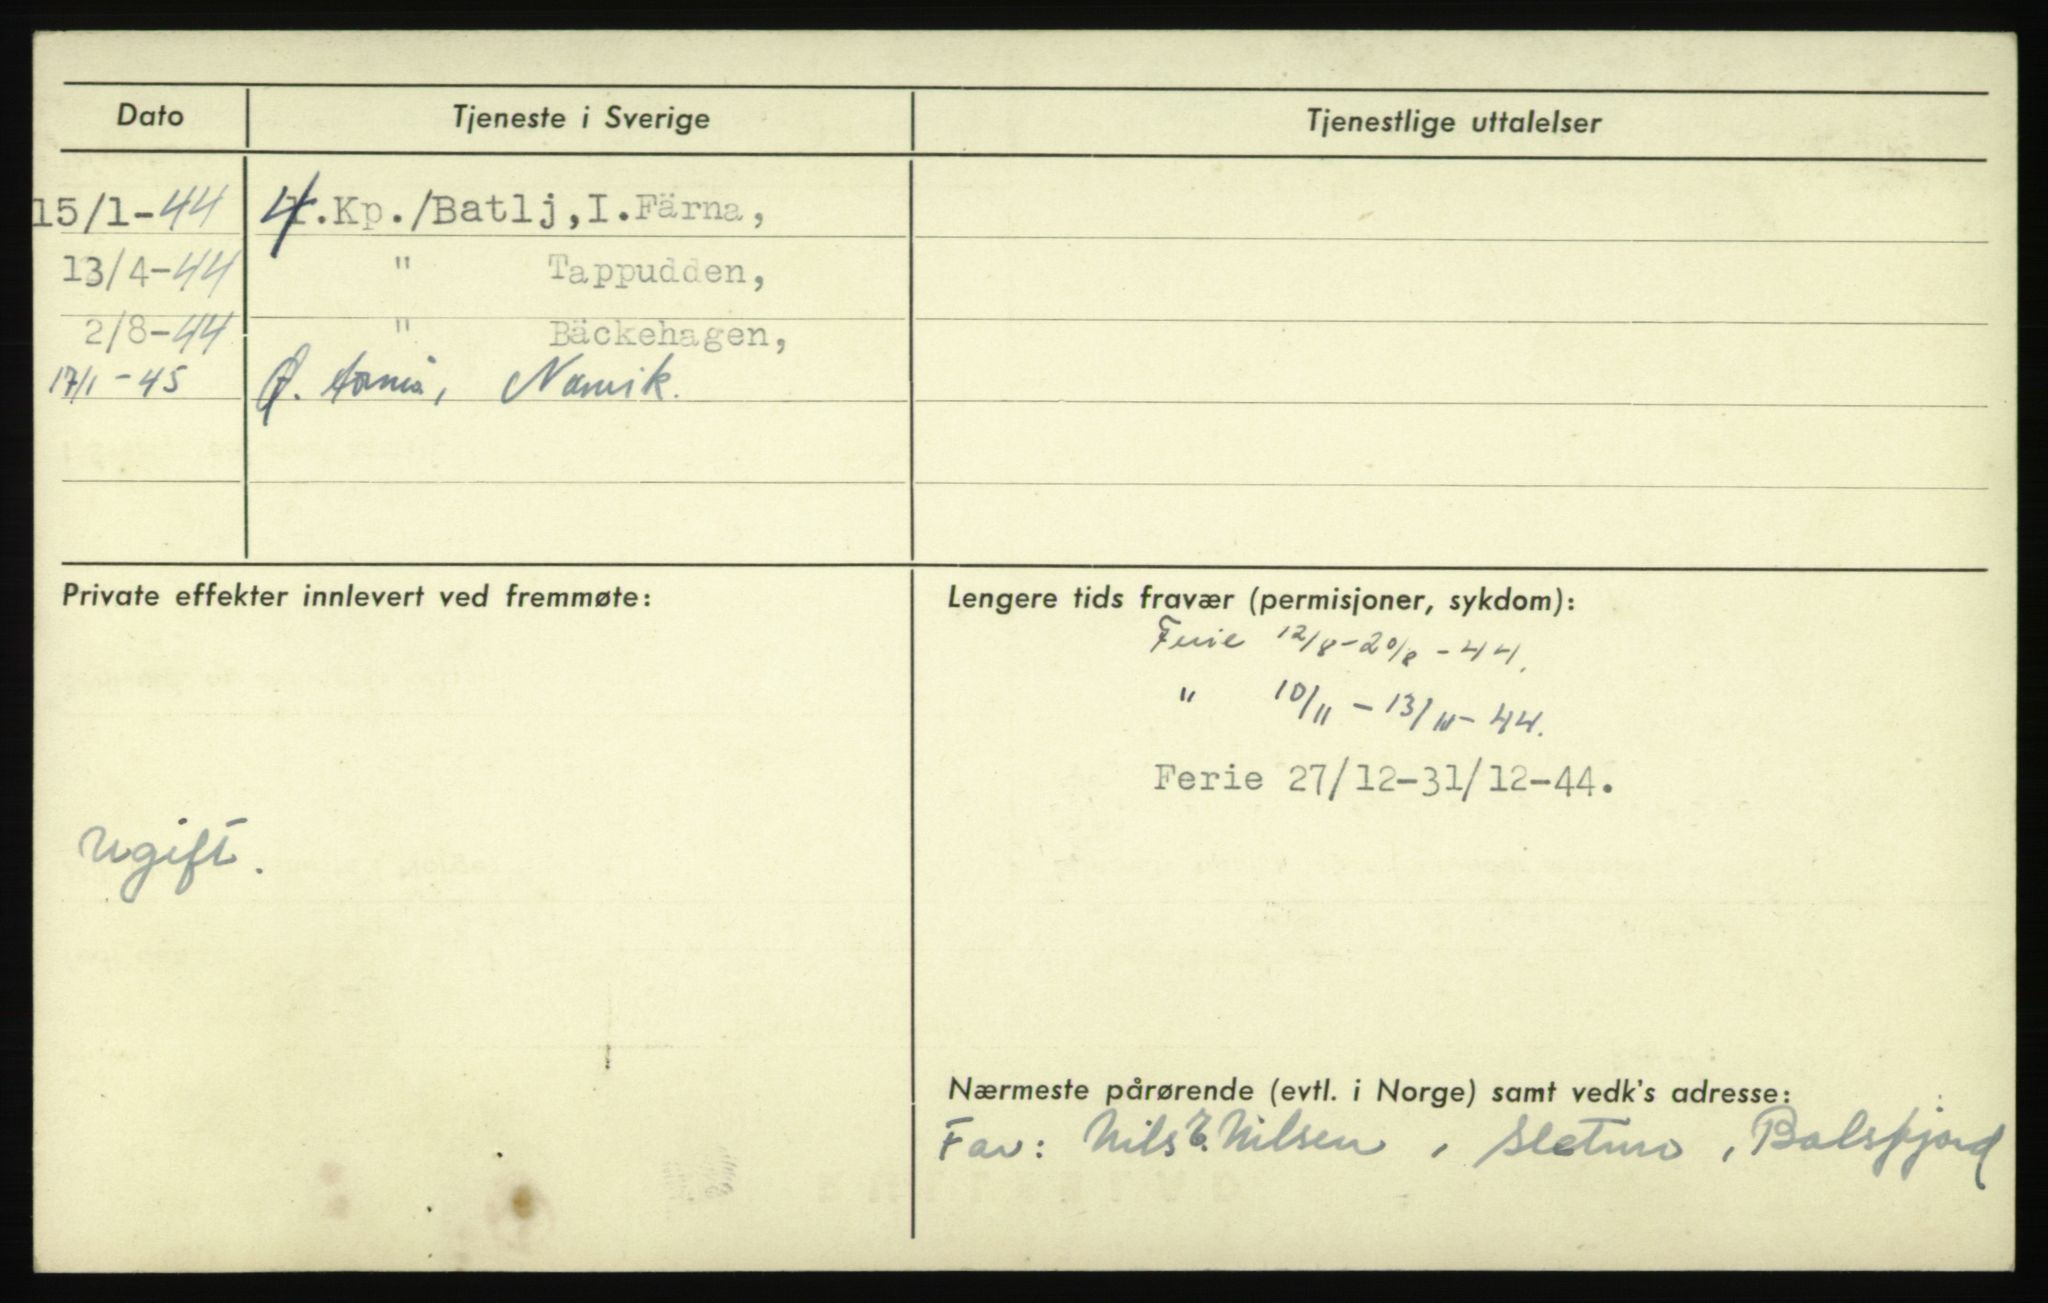 Dato Tjeneste i Sverige Tjenestlige uttalelser
15/1-44 4.Kp./Batlj,I.Färna,
13/4-44 " Tappudden,
2/8-44 " Bäckehagen,
17/1-45 Narvik.
Private effekter innlevert ved fremmøte:
Ugift.
Lengere tids fravær (permisjoner, sykdom):
Ferie 12/8-20/8-44.
" 10/11-13/11-44.
Ferie 27/12-31/12-44.
Nærmeste pårørende (evtl. i Norge) samt vedk's adresse:
Far: Nils E. Nilsen, Sletmo, Balsfjord